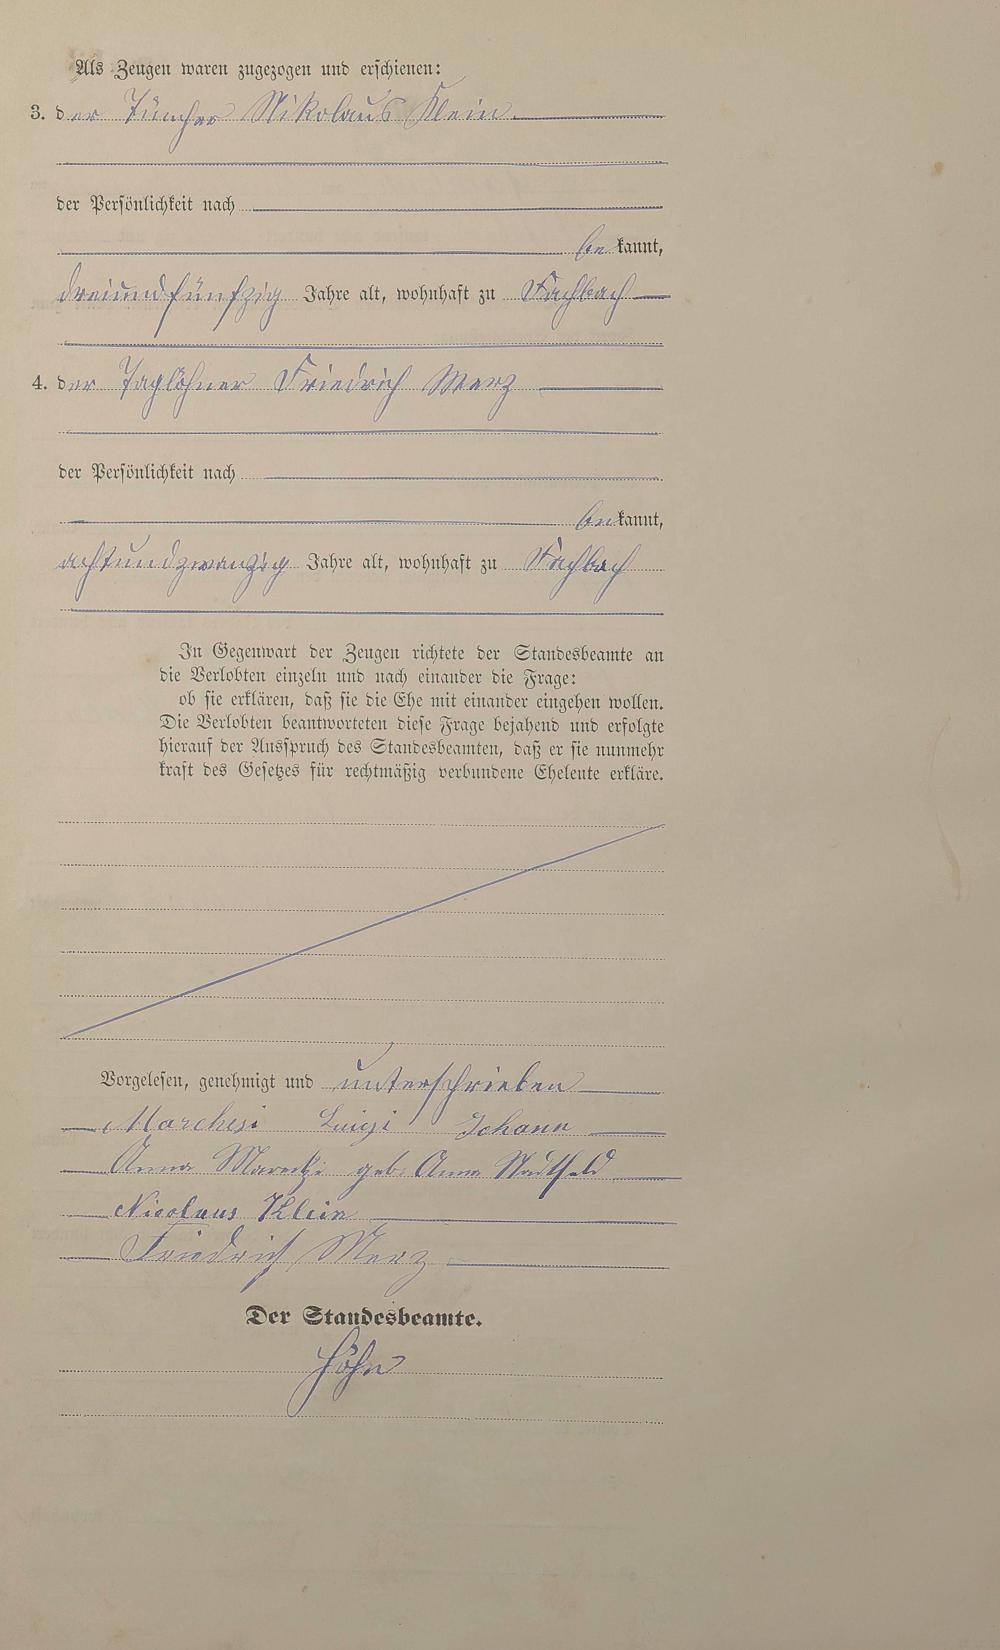 Als Zeugen waren zugezogen und erschienen:
3. der Tüncher Nikolaus Klein
der Persönlichkeit nach
be kannt,
dreiundfünfzig Jahre alt, wohnhaft zu Fachbach
4. der Taglöhner Friedrich Merz
der Persönlichkeit nach
be kannt,
achtundzwanzig Jahre alt, wohnhaft zu Fachbach
In Gegenwart der Zeugen richtete der Standesbeamte an
die Verlobten einzeln und nach einander die Frage:
ob sie erklären, daß sie die Ehe mit einander eingehen wollen.
Die Verlobten beantworteten diese Frage bejahend und erfolgte
hierauf der Ausspruch des Standesbeamten, daß er sie nunmehr
kraft des Gesetzes für rechtmäßig verbundene Eheleute erkläre.
Vorgelesen, genehmigt und unterschrieben
Marchesi Luigi Johann
Anna geb. Anna Stadtfeld
Nicolaus Klein
Friedrich Merz
Der Standesbeamte.
Höhn